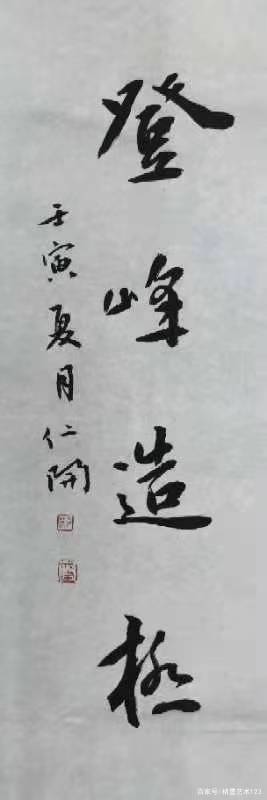 登峰造极
壬寅夏月仁開
百家号/精墨艺术123